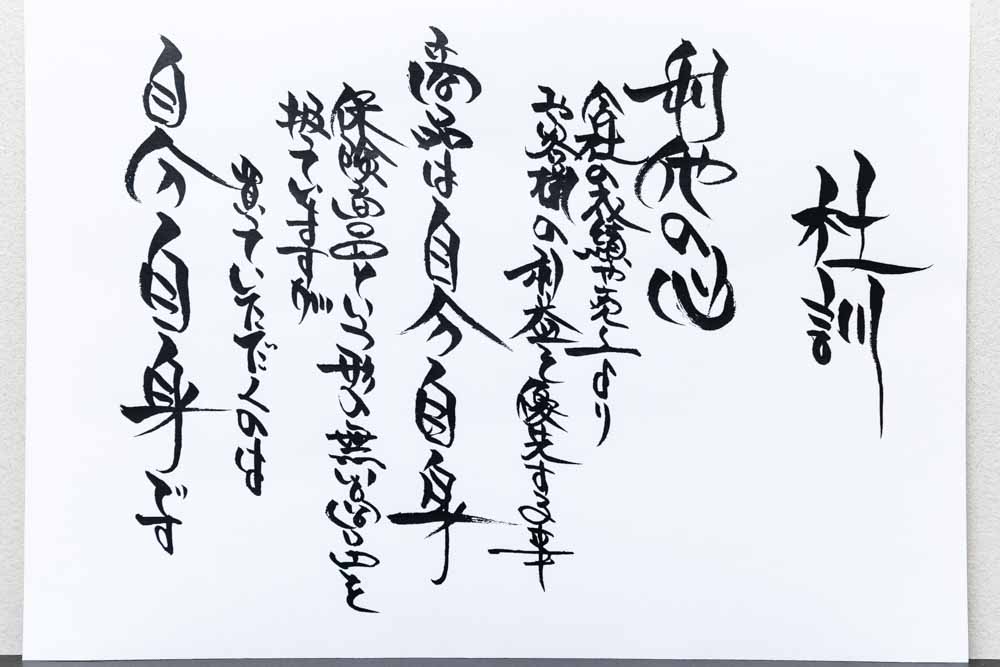 社訓
利他の心
会社の成績や売上より
お客様の利益を優先する事
商品は自分自身
保険商品という形の無い商品を
扱っていますが
買っていただくのは
自分自身です